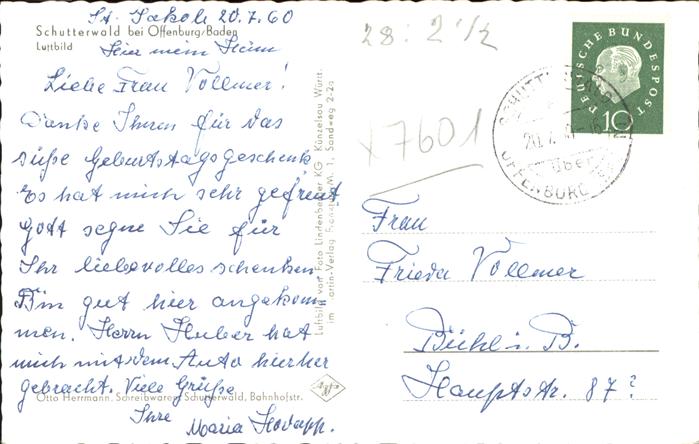 St. Jakob 20.7.60
Schutterwald bei Offenburg/Baden
Luftbild
Hier mein Heim
Liebe Frau Vollmer!
Danke Ihnen für das
süße Geburtstagsgeschenk
Es hat mich sehr gefreut
Gott segne Sie für
Ihr liebevolles schenken
Bin gut hier angekom
men. Herrn Huber hat
mich mit dem Auto hierher
gebracht. Viele Grüße
Otto Herrmann, Schreibwaren, Schutterwald, Bahnhofstr.
Ihre
Maria
Luftbild von Foto Lindenberger KG Künzelsau Württ.
im Martin-Verlag Frankfurt M. 1, Sandweg 2-2a
28: 2 1/2
x7601
DEUTSCHE BUNDESPOST
10
SCHUTTERWALD
20.7.60-16
über
OFFENBURG
Frau
Frieda Vollmer
Bühl i. B.
Hauptstr. 87?